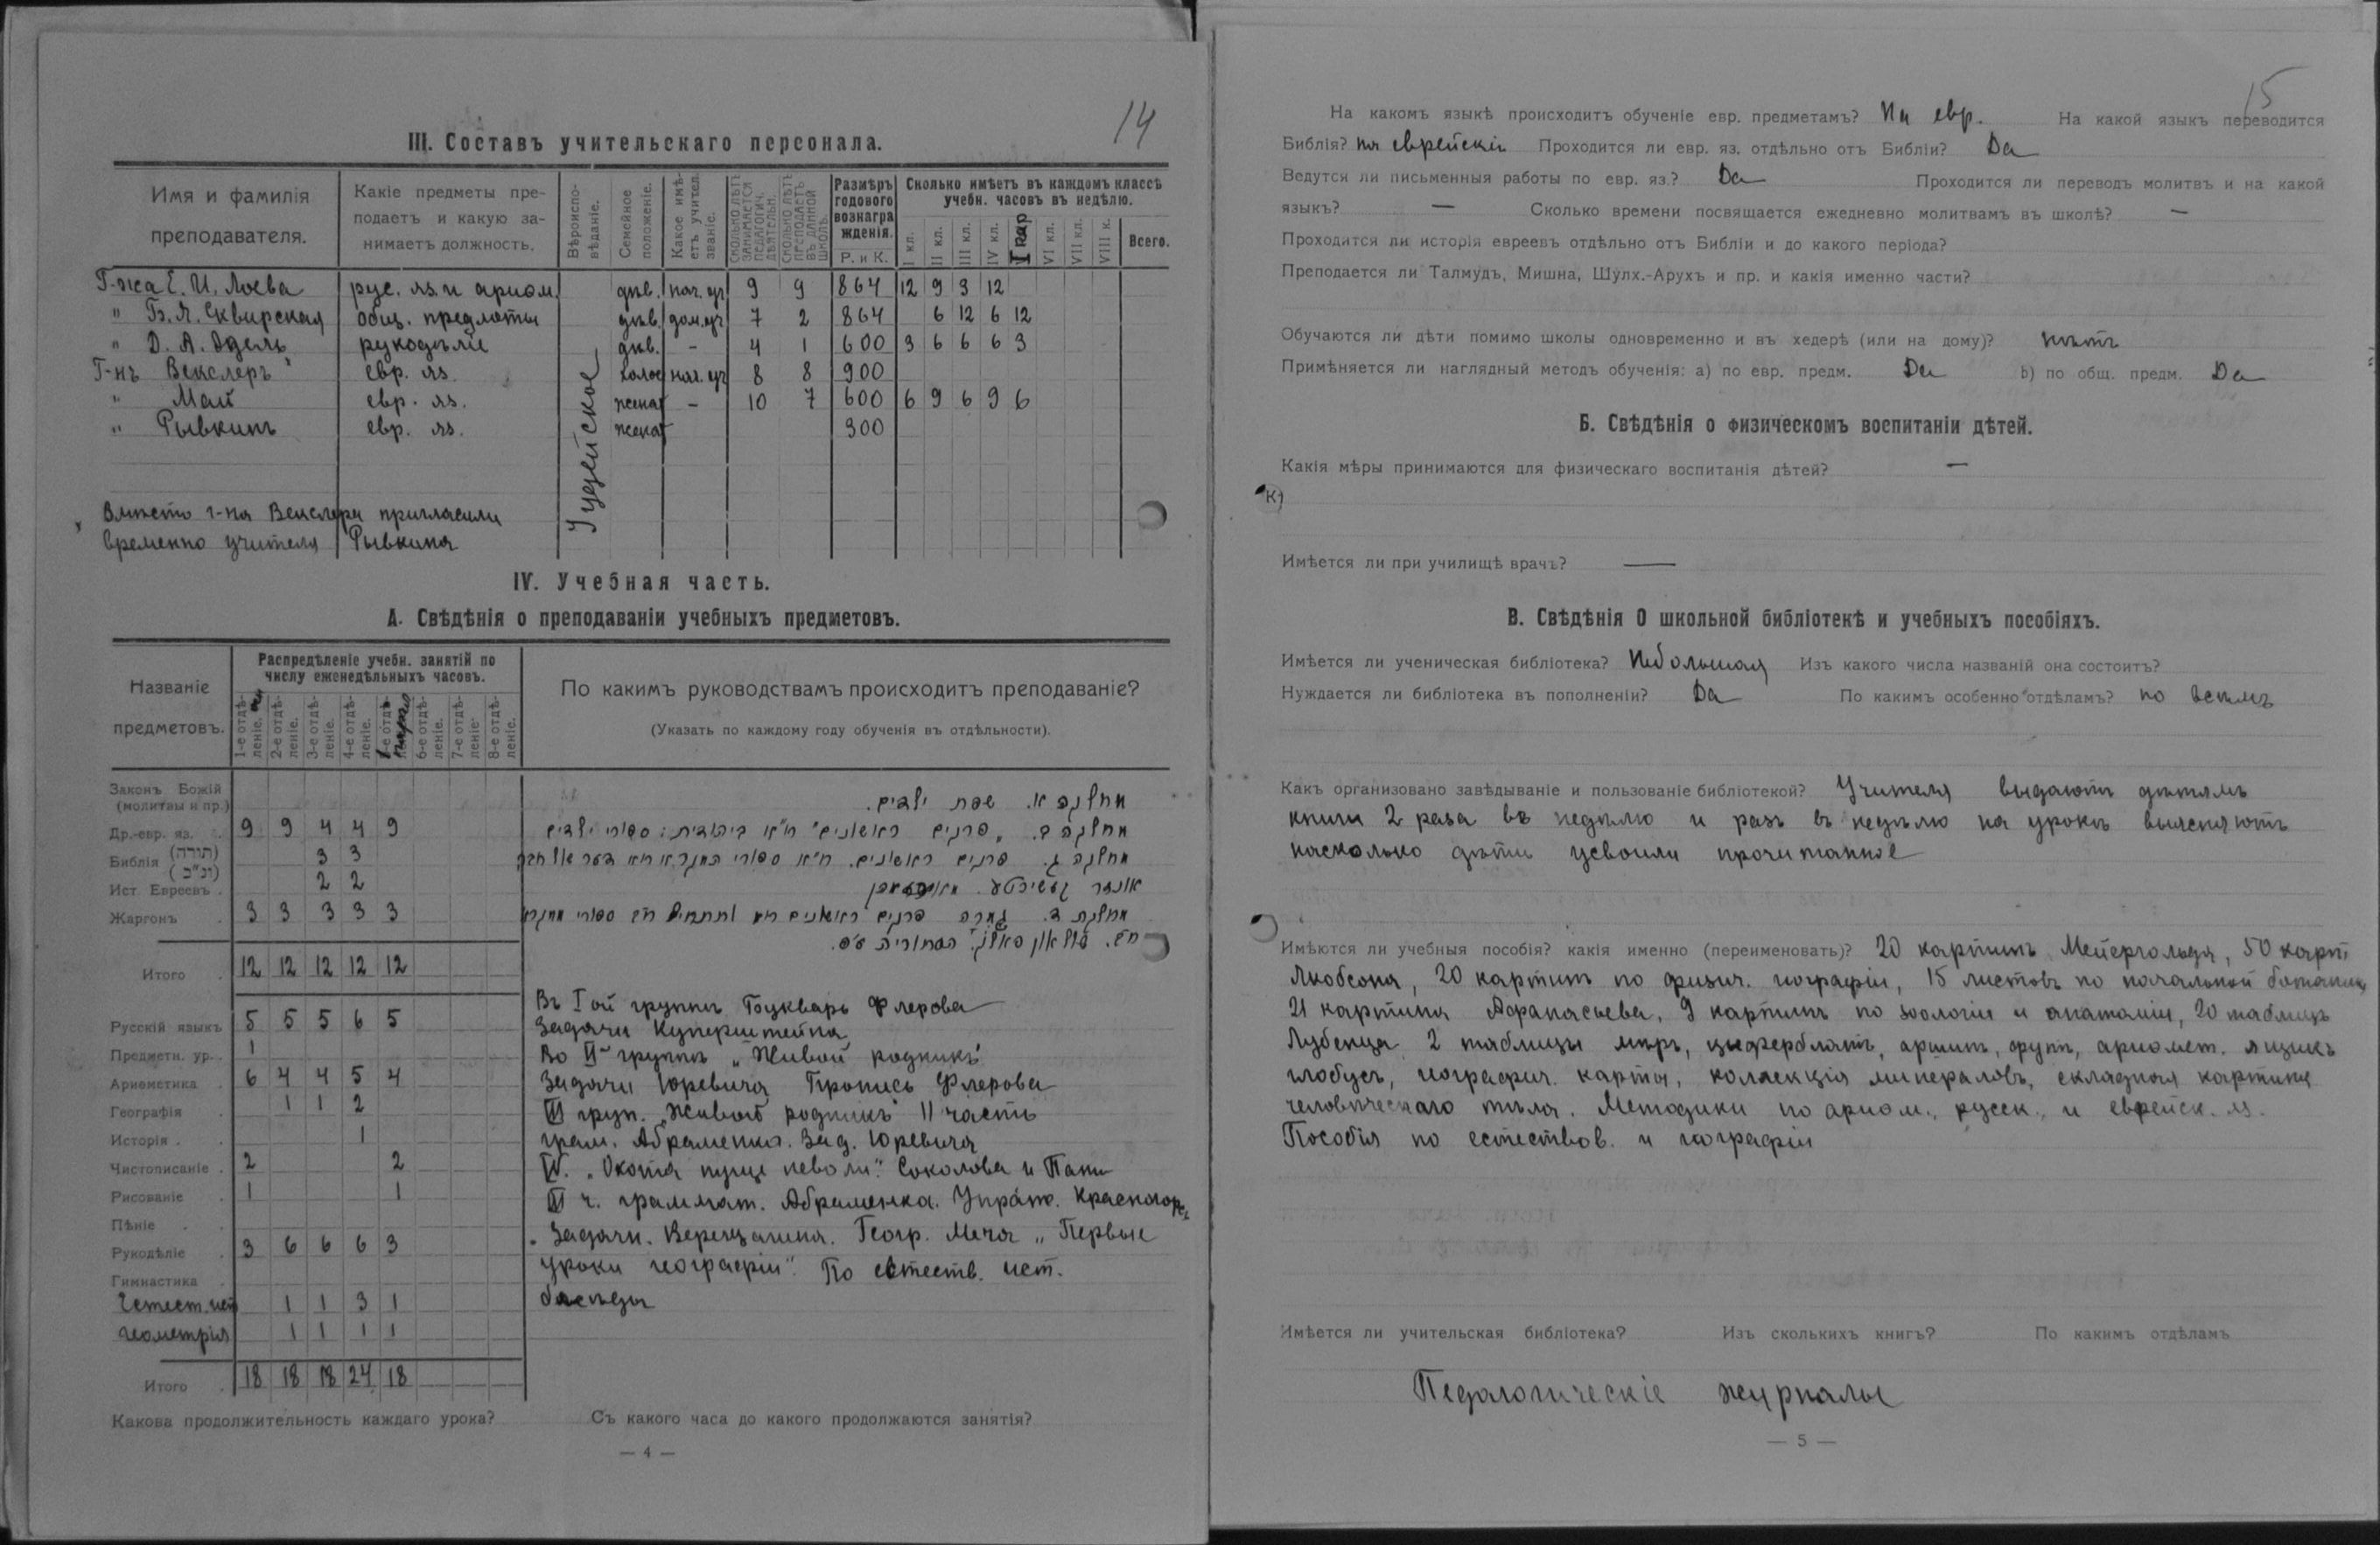 14
III. Составъ учительскаго персонала.
Имя и фамилія преподавателя.
Какіе предметы пре-
подаетъ и какую за-
нимаетъ должность.
Вѣроиспо-
вѣданіе.
Семейное
положеніе.
Какое имѣ-
етъ учител.
званіе.
Сколько лѣтъ
занимается
педагогич.
дѣятельн.
Сколько лѣтъ
преподаетъ
въ данной
школѣ.
Размѣръ
годового
вознагра
жденія.
Р. и К.
Сколько имѣетъ въ каждомъ классѣ
учебн. часовъ въ недѣлю.
I кл. II кл. III кл. IV кл. I пар VI кл. VII кл. VIII к. Всего.
Г-жа Е. И. Лоева рус. яз. и ариѳм. дѣв. нач. уч 9 9 864 12 9 3 12
" Б. Я. Сквирская общ. предметы дѣв. дом. уч 7 2 864 6 12 6 12
" D. А. Эдель рукодѣліе дѣв. - 4 1 600 3 6 6 6 3
Г-нъ Векслеръ евр. яз. холос нач. уч 8 8 900
" Май евр. яз. женат - 10 7 600 6 9 6 9 6
" Рывкинъ евр. яз. женат 300
Іудейское
Вмѣсто г-на Векслера пригласили
временно учителя Рывкина
IV. Учебная часть.
А. Свѣдѣнія о преподаваніи учебныхъ предметовъ.
Названіе
предметовъ.
Распредѣленіе учебн. занятій по
числу еженедѣльныхъ часовъ.
1-е отдѣ-
леніе.
2-е отдѣ-
леніе.
3-е отдѣ-
леніе.
4-е отдѣ-
леніе.
6-е отдѣ-
леніе.
7-е отдѣ-
леніе.
8-е отдѣ-
леніе.
По какимъ руководствамъ происходитъ преподаваніе?
(Указать по каждому году обученія въ отдѣльности).
Законъ Божій
(молитвы и пр.)
מחלקה א. שפת ילדים.
Др.-евр. яз. 9 9 4 4 9
מחלקה ב. "פרקים ראשונים" ח"א ביהודית: ספורי ילדים
Библія (תורה) 3 3
(ונ"ב)
מחלקה ג. פרקים ראשונים. ח"א ספורי המקרא
Ист. Евреевъ 2 2
Жаргонъ 3 3 3 3 3
מחלקת ד. פרקים ראשונים ספורי המקרא
Итого 12 12 12 12 12
Русскій языкъ 5 5 5 6 5
Предметн. ур. 1
Ариѳметика 6 4 4 5 4
Географія 1 1 2
Исторія 1
Чистописаніе 2 2
Рисованіе 1 1
Пѣніе
Рукодѣліе 3 6 6 6 3
Гимнастика
Естест. ист 1 1 3 1
Геометрія 1 1 1 1
Итого 18 18 18 24 18
Въ I ой группѣ Букварь Флерова
Задачи Куперштейна
Во II группѣ „Живой родникъ"
Задачи Юревича Пропись Флерова
III груп. „Живой родникъ" II часть
грам. Абраменко. Зад. Юревича
IV. „Охота пуще неволи". Соколова и
III ч. граммат. Абраменка. Упраж. Красногорс.
Задачи. Верещагина. Геогр. Меча „Первые
уроки географіи". По естеств. ист.
бесѣды
Какова продолжительность каждаго урока? Съ какого часа до какого продолжаются занятія?
— 4 —
15
На какомъ языкѣ происходитъ обученіе евр. предметамъ? На евр. На какой языкъ переводится
Библія? на еврейскій Проходится ли евр. яз. отдѣльно отъ Библіи? Da
Ведутся ли письменныя работы по евр. яз.? Da Проходится ли переводъ молитвъ и на какой
языкъ? — Сколько времени посвящается ежедневно молитвамъ въ школѣ? —
Проходится ли исторія евреевъ отдѣльно отъ Библіи и до какого періода?
Преподается ли Талмудъ, Мишна, Шулх.-Арухъ и пр. и какія именно части?
Обучаются ли дѣти помимо школы одновременно и въ хедерѣ (или на дому)? нѣтъ
Примѣняется ли наглядный методъ обученія: а) по евр. предм. Da b) по общ. предм. Da
Б. Свѣдѣнія о физическомъ воспитаніи дѣтей.
Какія мѣры принимаются для физическаго воспитанія дѣтей? —
Имѣется ли при училищѣ врачъ? —
В. Свѣдѣнія О школьной библіотекѣ и учебныхъ пособіяхъ.
Имѣется ли ученическая библіотека? Небольшая Изъ какого числа названій она состоитъ?
Нуждается ли библіотека въ пополненіи? Da По какимъ особенно отдѣламъ? по всѣмъ
Какъ организовано завѣдываніе и пользованіе библіотекой? Учителя выдаютъ дѣтямъ
книги 2 раза въ недѣлю и разъ въ недѣлю на урокѣ выясняютъ
насколько дѣти усвоили прочитанное
Имѣются ли учебныя пособія? какія именно (переименовать)? 20 картинъ Мейергольда, 50 карт
Якобсона, 20 картинъ по физич. географіи, 15 листовъ по начальной ботаникѣ
21 картина Афанасьева, 9 картинъ по зоологіи и анатоміи, 20 таблицъ
Лубенца 2 таблицы мѣръ, циферблатъ, аршинъ, фунтъ, ариѳмет. ящикъ
глобусъ, географич. карты, коллекція минераловъ, складная картина
человѣческаго тѣла. Методики по ариѳм., русск., и еврейск. яз.
Пособія по естествов. и географіи
Имѣется ли учительская библіотека? Изъ сколькихъ книгъ? По какимъ отдѣламъ
Педагогическіе журналы
— 5 —